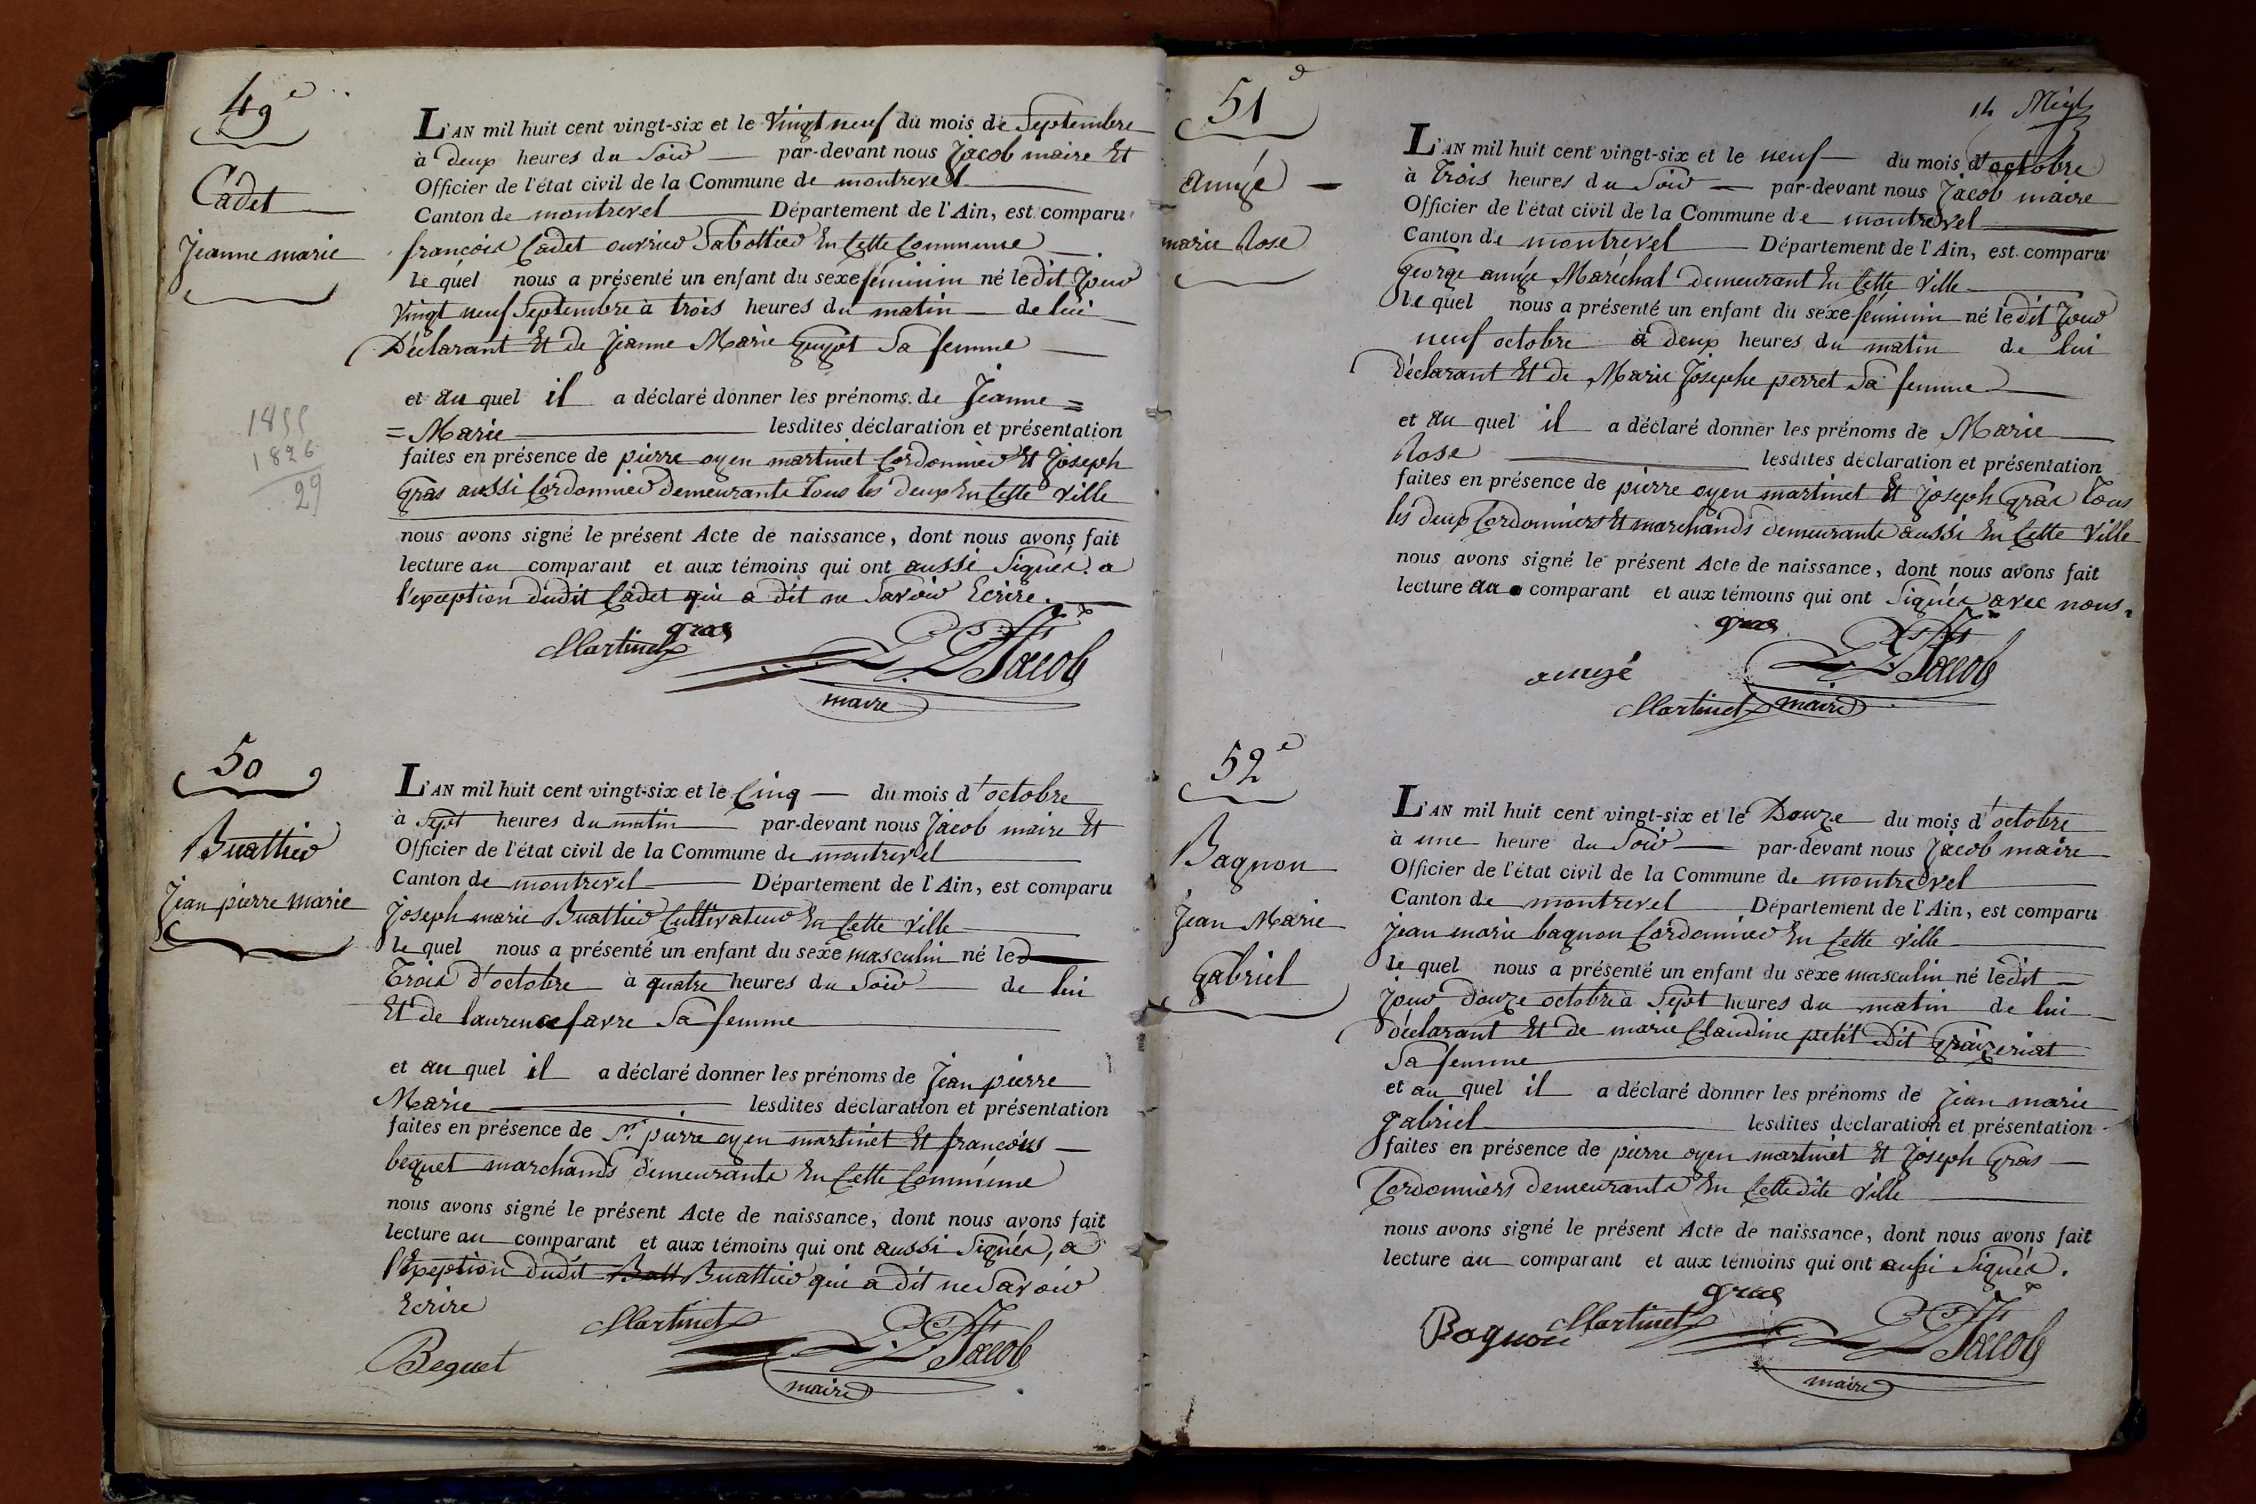 49e
Cadet
Jeanne marie
L'AN mil huit cent vingt-six et le Vingt neuf du mois de Septembre
à deux heures du Soir par-devant nous Jacob maire Et
Officier de l'état civil de la Commune de montrevel
Canton de montrevel Département de l'Ain, est comparu
françois Cadet ouvrier Sabottier En Cette Commune
le quel nous a présenté un enfant du sexe féminin né le dit Jour
Vingt neuf Septembre à trois heures du matin de lui
Déclarant Et de Jeanne Marie Guyot Sa femme
et au quel il a déclaré donner les prénoms de Jeanne =
= Marie lesdites déclaration et présentation
faites en présence de pierre oyen martinet Cordonnier Et Joseph
Gras aussi Cordonnier demeurants Tous les deux En Cette Ville
nous avons signé le présent Acte de naissance, dont nous avons fait
lecture au comparant et aux témoins qui ont aussi Signés. a
l'exception dudit Cadet qui a dit ne Savoir Ecrire.
gras
Martinet
Jacob
maire
1855
1826
29
50
Buattier
Jean pierre marie
L'AN mil huit cent vingt-six et le Cinq du mois d'octobre
à Sept heures du matin par-devant nous Jacob maire Et
Officier de l'état civil de la Commune de montrevel
Canton de montrevel Département de l'Ain, est comparu
Joseph marie Buattier Cultivateur En Cette Ville
le quel nous a présenté un enfant du sexe masculin né le
Trois d'octobre à quatre heures du Soir de lui
Et de laurence favre Sa femme
et au quel il a déclaré donner les prénoms de Jean pierre
Marie lesdites déclaration et présentation
faites en présence de Sr. pierre oyen martinet Et françois
bequet marchands demeurants En Cette Commune
nous avons signé le présent Acte de naissance, dont nous avons fait
lecture au comparant et aux témoins qui ont aussi Signés, a
l'Exeption dudit Buattier qui a dit ne Savoir
Ecrire
Martinet
Bequet
Jacob
maire
51e
amyé
marie Rose
14
L'AN mil huit cent vingt-six et le neuf du mois d'octobre
à Trois heures du Soir par-devant nous Jacob maire
Officier de l'état civil de la Commune de montrevel
Canton de montrevel Département de l'Ain, est comparu
George amyé Maréchal demeurant En Cette Ville
le quel nous a présenté un enfant du sexe féminin né le dit Jour
neuf octobre à deux heures du matin de lui
déclarant Et de Marie Josephe perret Sa femme
et au quel il a déclaré donner les prénoms de Marie
Rose lesdites déclaration et présentation
faites en présence de pierre oyen martinet Et Joseph Gras Tous
les deux Cordonniers Et marchands demeurants aussi En Cette Ville
nous avons signé le présent Acte de naissance, dont nous avons fait
lecture au comparant et aux témoins qui ont Signés avec nous.
gras
amyé
Jacob
Martinet maire
52e
Bagnon
Jean Marie
Gabriel
L'AN mil huit cent vingt-six et le Douze du mois d'octobre
à une heure du Soir par-devant nous Jacob maire
Officier de l'état civil de la Commune de montrevel
Canton de montrevel Département de l'Ain, est comparu
Jean marie bagnon Cordonnier En Cette Ville
le quel nous a présenté un enfant du sexe masculin né le dit
Jour douze octobre à Sept heures du matin de lui
déclarant Et de marie Claudine petit Dit
Sa femme
et au quel il a déclaré donner les prénoms de Jean marie
gabriel lesdites déclaration et présentation
faites en présence de pierre oyen martinet Et Joseph Gras
Cordonniers demeurants En Cette dite Ville
nous avons signé le présent Acte de naissance, dont nous avons fait
lecture au comparant et aux témoins qui ont aussi Signés.
gras
Bagnon Martinet
Jacob
maire